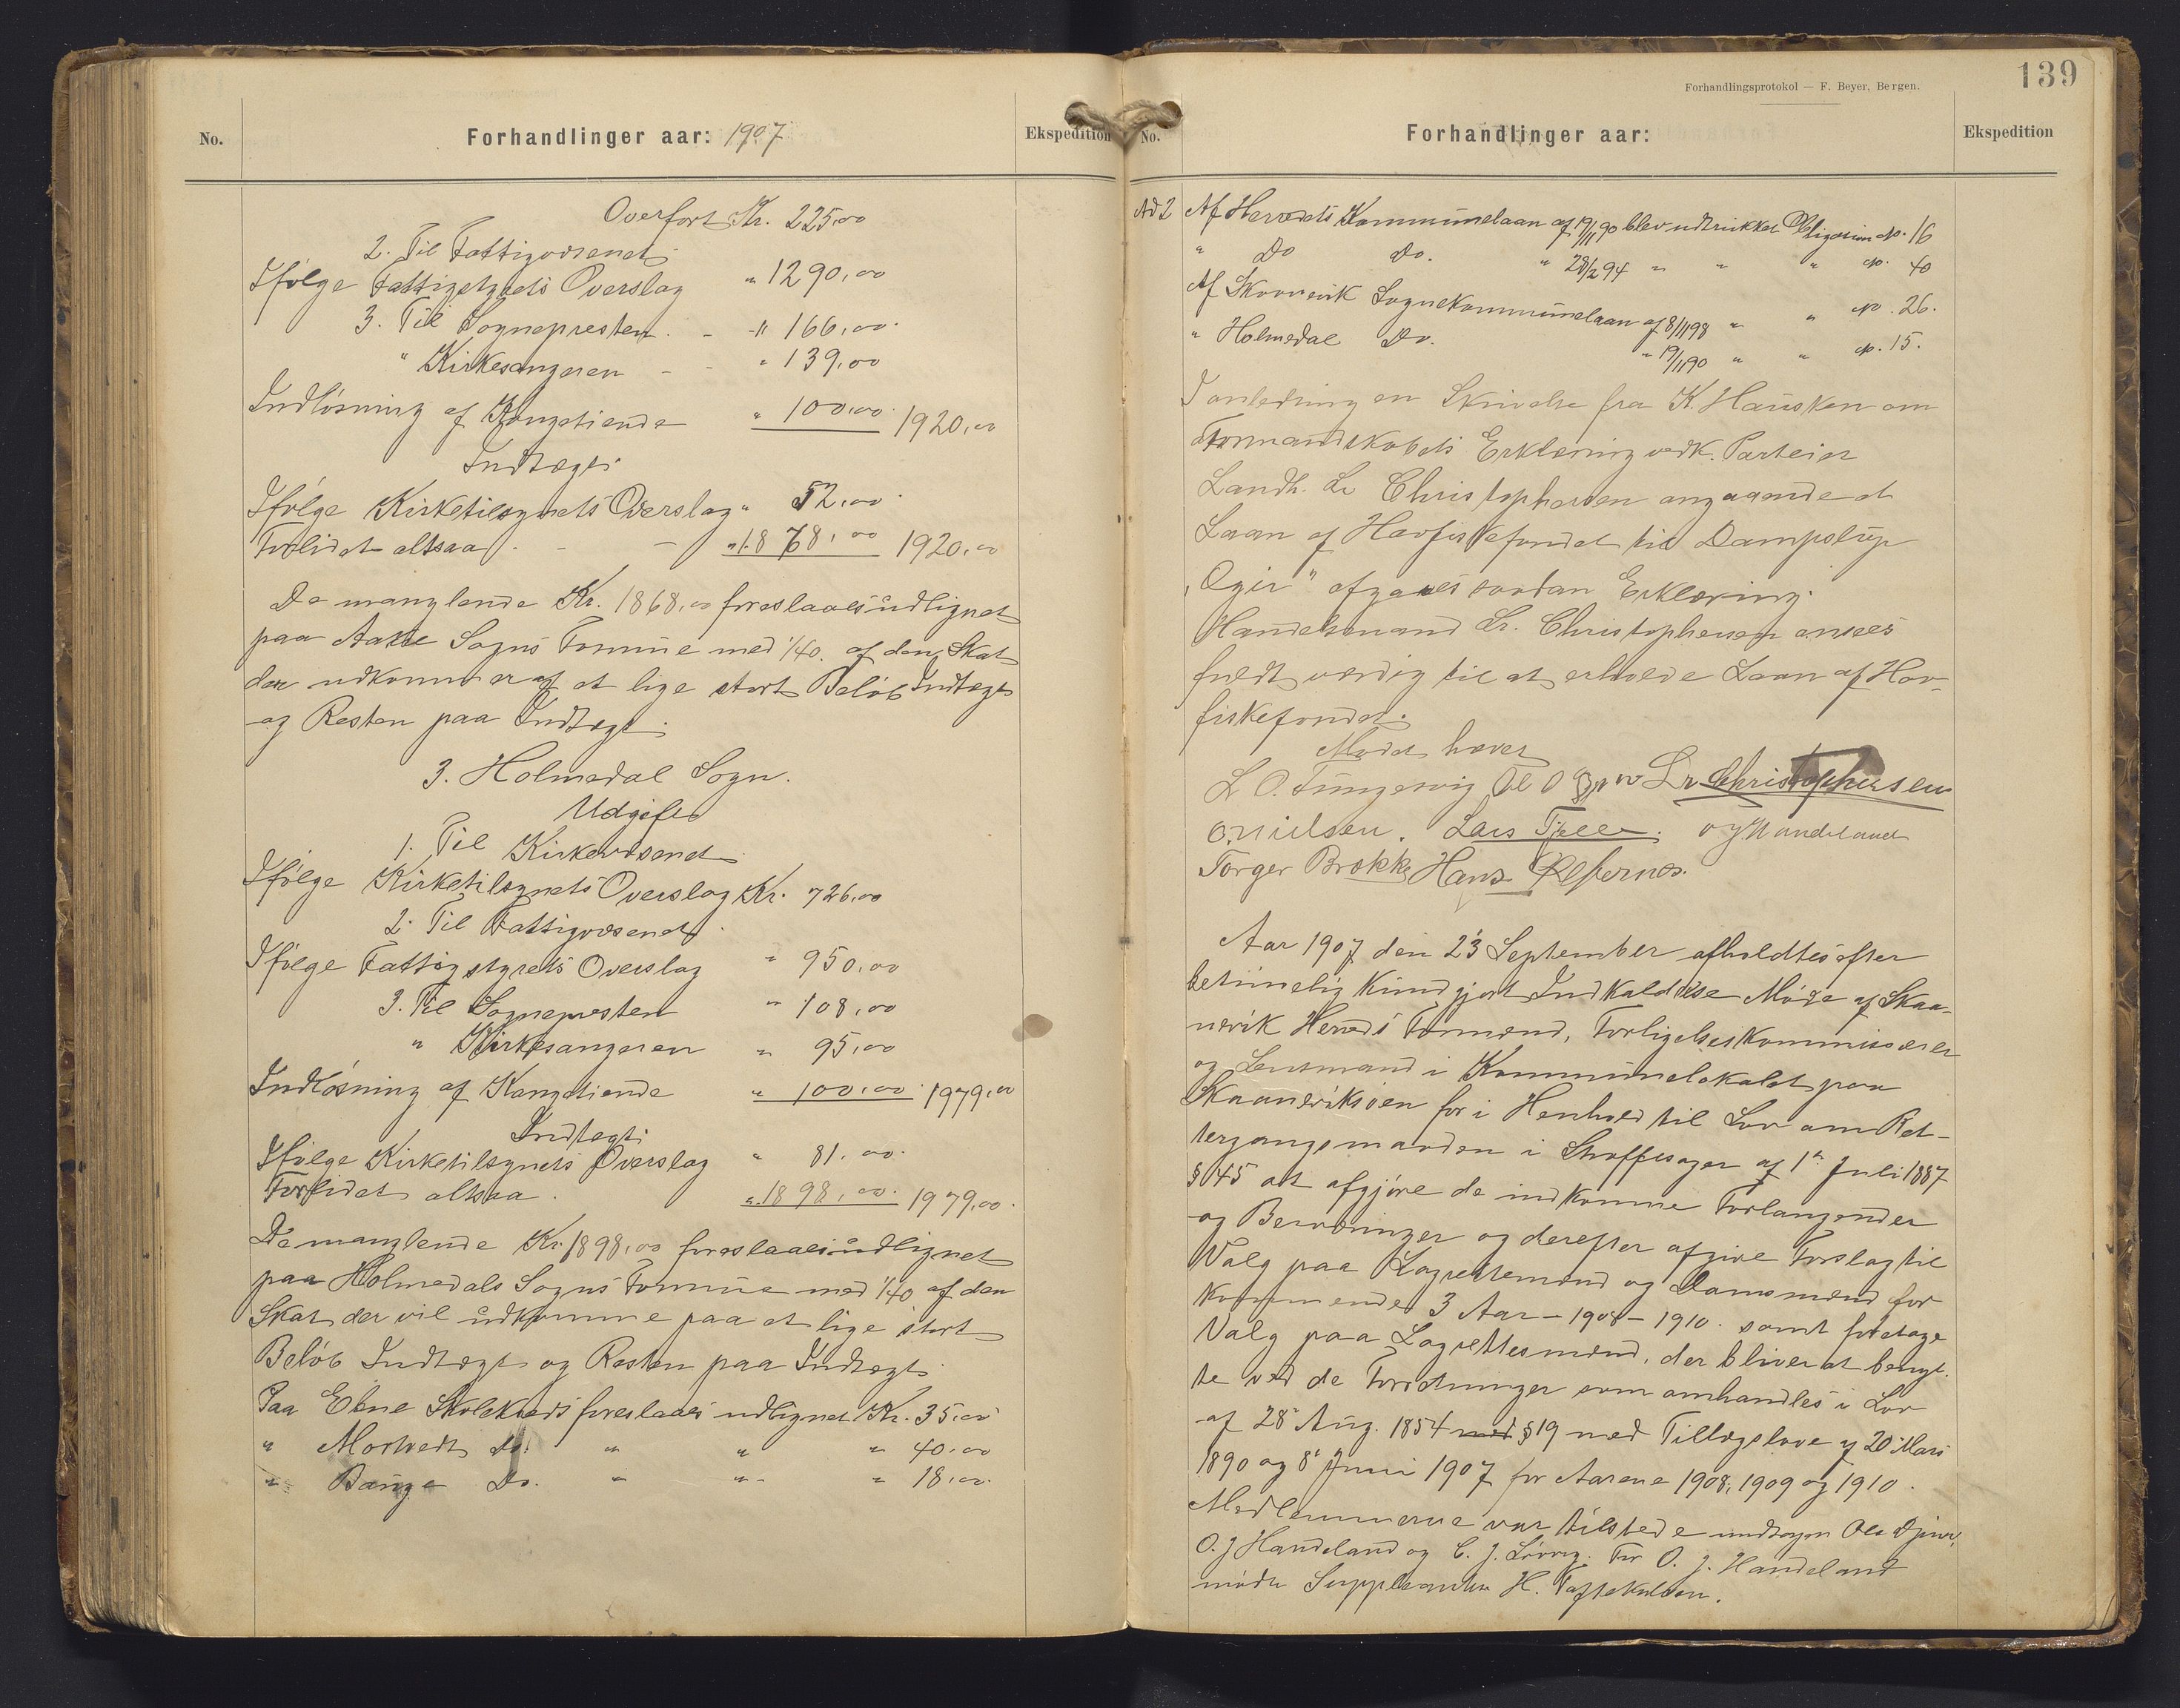 No.
Forhandlinger aar: 1907
Ekspedition
Overført Kr. 225,00
2. Til Fattigvæsenet
Ifølge Fattigstyrets Overslag " 1290,00
3. Til Sognepresten - " 166,00
" Kirkesangeren - - " 139,00
Indløsning af Kongetiende " 100,00 1920,00
Indtægt:
Ifølge Kirketilsynets Overslag " 52,00
Forlidet altsaa - - " 1868,00 1920,00
De manglende Kr. 1868,00 foreslaaes udlignet
paa Aakre Sogns Formue med 1/40 af den Skat
der udkommer af et lige stort Beløb Indtægt
og Resten paa Indtægt.
3. Holmedal Sogn.
Udgift
1. Til Kirkevæsenet
Ifølge Kirketilsynets Overslag Kr. 726,00
2. Til Fattigvæsenet
Ifølge Fattigstyrets Overslag " 950,00
3. Til Sognepresten " 108,00
" Kirkesangeren " 95,00
Indløsning af Kongetiende " 100,00 1979,00
Indtægt:
Ifølge Kirketilsynets Overslag " 81,00
Forlidet altsaa " 1898,00 1979,00
De manglende Kr. 1898,00 foreslaaes udlignet
paa Holmedals Sogns Formue med 1/40 af den
Skat der vil udkomme paa et lige stort
Beløb Indtægt og Resten paa Indtægt
Paa Ebne Skolekreds foreslaaes udlignet Kr. 35,00
" Mortvedt Do. " " " 40,00
" Bauge Do. " " " 18,00
139
Forhandlingsprotokol — F. Beyer, Bergen.
No.
Forhandlinger aar:
Ekspedition
Ad 2 Af Herredets Kommunelaan af 19/11 90 blev udtrukket Obligasion No. 16
" Do Do. " 28/2 94 " " " No. 40
Af Skonevik Sognekommunelaan af 8/11 98 " " No. 26.
" Holmedal Do. " 19/11 90 " " No. 15.
I anledning en Skrivelse fra K. Hausken om
Formandskabets Erklæring vedk. Partsier
Landh. Lr Christophersen angaaende et
Laan af Havfiskefondet til Dampskip
"Ægir" afgaves saadan Erklæring:
Handelsmand Lr. Christophersen ansees
fuldt værdig til at erholde Laan af Hav-
fiskefondet.
Mødet hævet
L O. Tungesvig Lr Christophersen
O. Nielsen. Lars Tjelle. O J Handeland
Torger Brekke Hans Ølfernes.
Aar 1907 den 23 September afholdtes efter
betimelig kundgjort Indkaldelse Møde af Skaa-
nevik Herreds Formænd, Forligelseskommissærer
og Lensmand i Kommunelokalet paa
Skaanevikøen for i Henhold til Lov om Ret-
tergangsmaaden i Straffesager af 1ste Juli 1887
§ 45 at afgjøre de indkomne Forlangender
og Bemærkninger og derefter afgive Forslag til
Valg paa Lagrettemænd og Domsmænd for
kommende 3 Aar - 1908 - 1910. samt foretage
Valg paa Lagrettesmænd, der bliver at benyt-
te ved de Forretninger som omhandles i Lov
af 28de Aug. 1854 med § 19 med Tillægslove af 20 Mars
1890 og 8de Juni 1907 for Aarene 1908, 1909 og 1910.
Medlemmerne var tilstede undtagen Ole Djuve,
O. J Handeland og C. J. Løvvig. For O. J. Handeland
mødte Suppleanten H. Toftekalven.